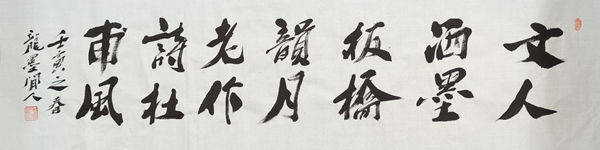 文人
洒墨
板橋
韻月
老作
詩杜
甫風
壬寅之春
龍墨閒人